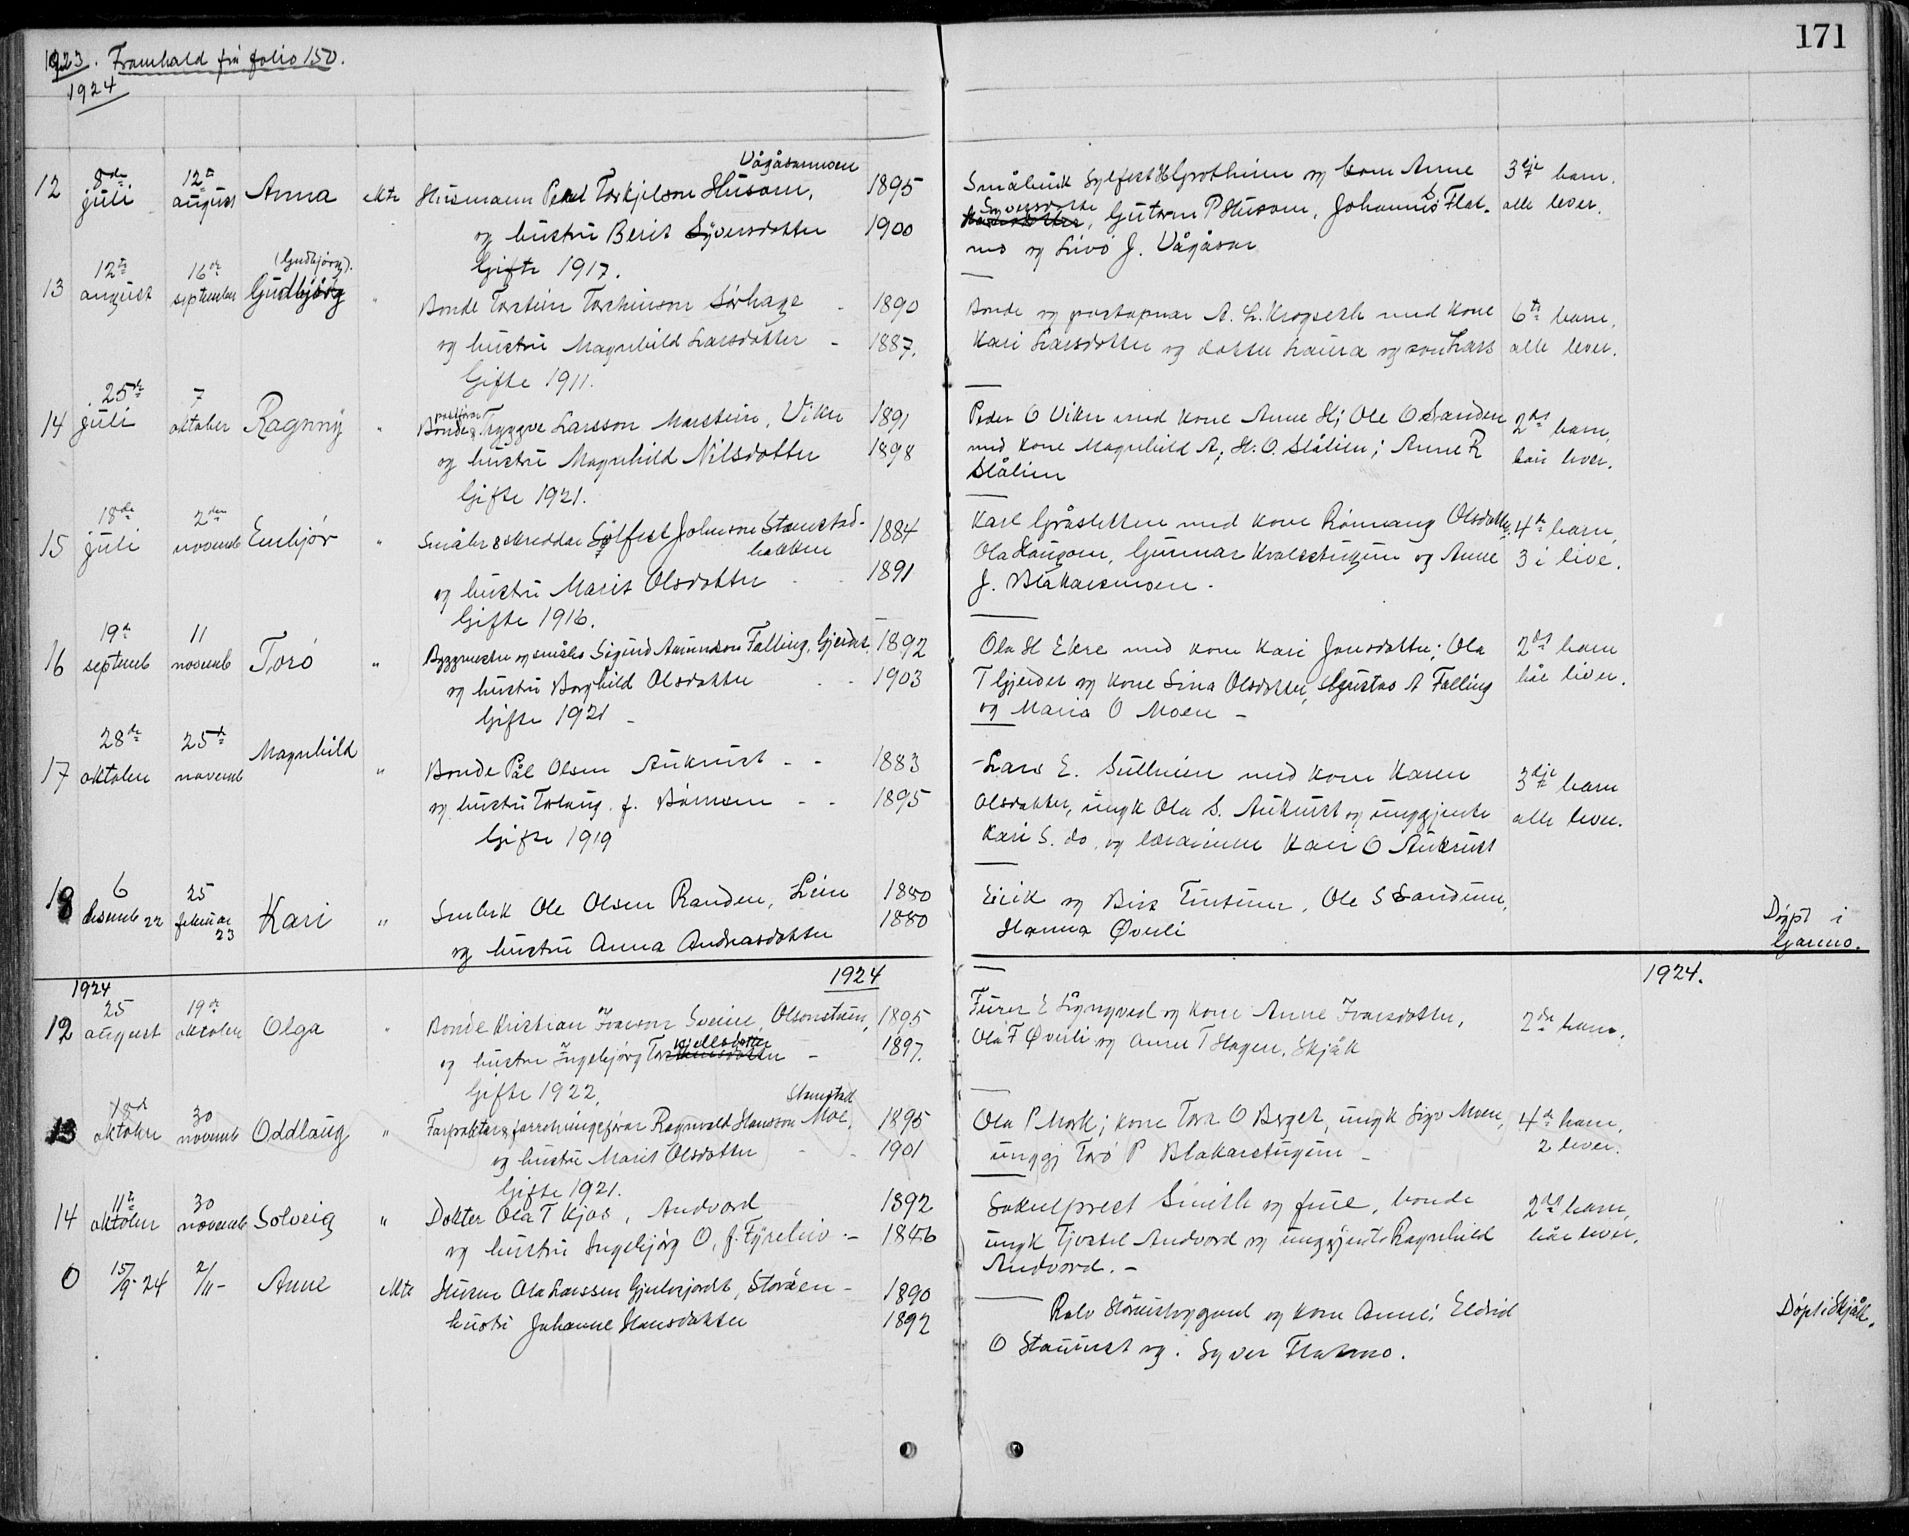 171
1923. Framhald frå folio 150.
1924
12 8de juli 12te august Anna ekte Husmann Torkjelson Husom, Vågåsarmoen 1895
og hustru Berit Syversdotter 1900
Gifte 1917.
Småbruk Sylfest H Grotheim og kone Anne
Syversdotter, Guttorm P Husom, Johannes Flat-
mo og Livø J. Vågåsar
3dje barn.
alle lever.
13 12te august 16de september Gudbjørg (Gudbjørg). " Bonde Torstein Torsteinson Sørhage - 1890
og hustru Magnhild Larsdotter - 1887.
Gifte 1911.
Bonde og postopnar A. L. Krogseth med kone
Kari Larsdotter og dotter Laura og son Lars
6te barn,
alle lever.
14 25de juli 7 oktober Ragnny " Bonde Tryggve Larsson Marstein, Viken 1891
og hustru Magnhild Nilsdotter 1898
Gifte 1921.
Peder O Viken med kone Anne H; Ole O Sanden
med kone Magnhild A; H. O. Slålien; Anne R
Slålien
2det barn,
lever.
15 18de juli 2den novemb Embjør " Småbr & skreddar Sylfest Johnson Stamstad-
bakken 1884
og hustru Marit Olsdotter - - 1891
Gifte 1916.
Karl Gråsletten med kone Rønnaug Olsdotter,
Ola Haugom, Gunnar Kvalestugun og Anne
J. Blakarsmoen.
4de barn,
3 i live.
16 19de septemb 11 novemb Torø " Byggmester og småbr Sigurd Amundson Falling, Gjerdet, 1892
og hustru Borghild Olsdotter - - 1903
Gifte 1921 -
Ola H Ekre med kone Kari Jonsdotter; Ola
T Gjerdet og kone Sina Olsdotter, Gustav A Falling
og Maria O Moen -
2det barn
båe liver.
17 28de oktober 25de novemb Magnhild " Bonde Pål Olsen Aukrust - - 1883
og hustru Torlaug f. - - 1895
Gifte 1919
Lars E. Sulheim med kone Karen
Olsdotter, ungk Ola S. Aukrust og unggjente
Kari S. do, og lærarinne Kari O Aukrust
3dje barn
alle lever.
18 6 desemb 22 25 februar 23 Kari " Smbrk Ole Olsen Randen, Leine 1880
og hustru Anna Andreasdotter 1880
Eirik og Brit Ole S Sandum,
Hanna Øverli
Døypt i
Garmo.
1924 1924 1924.
12 25 august 19de oktober Olga " Bonde Kristian Ivarson Sveine, Olsonstuen, 1895
og hustru Ingebjørg Torkjellsdotter - 1897.
Gifte 1922.
E Lyngved og kone Anne Ivarsdotter,
Ola F Øverli og Anne T Hagen, Skjåk
2de barn.
13 oktober 30 novemb Oddlaug " Forpaktar & forretningsførar Ragnvald Hansson Moe, Stamstad 1895
og hustru Marit Olsdotter - - 1901
Gifte 1921.
Ola P Mork; kone Tora O Berget, ungk Sigv Moen,
unggj Torø P Blakarstugun -
4de barn,
2 lever.
14 11te oktober 30 novemb Solveig " Dokter Ola T Kjos, Andvord 1892
og hustru Ingebjørg O, f. Fyreliv - 1896
Soknelprest Smith og frue, bonde
ungk Tjostel Andvord og unggjente Ragnhild
Andvord. -
2det barn,
båe lever.
0 15/9-24 2/11- Anne ekte Husm Ola Larssen Gjeilvejordet, Storåen - 1890
hustru Johanne Hansdotter 1892
Rolv Skamsbygard og kone Anne; Eldrid
O Stamust og Syver Flatmo.
Døpt i Skjåk.